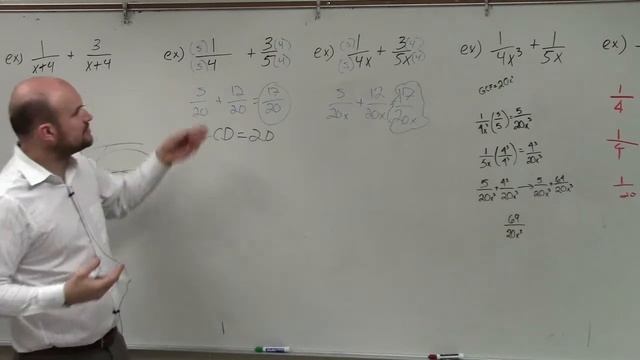 ex) 1/(x+4) + 3/(x+4)
ex) (5)1/(5)4 + 3(4)/5(4)
5/20 + 12/20 = 17/20
CD = 20
ex) (5)1/(5)4x + 3(4)/5x(4)
5/20x + 12/20x = 17/20x
ex) 1/4x³ + 1/5x
1/4x³ (5/5) = 5/20x³
1/5x (4³/4³) = 4³/20x³
5/20x³ + 4³/20x³ → 5/20x³ + 64/20x³
69/20x³
ex)
1/4
1/4
1/20